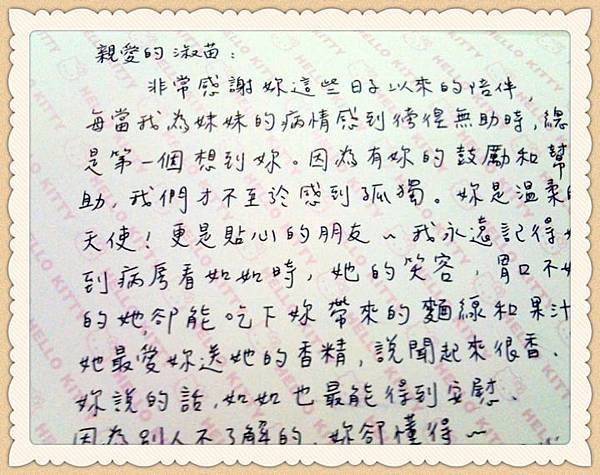 親愛的淑苗:
非常感謝妳這些日子以來的陪伴,
每當我為妹妹的病情感到徬徨無助時,總
是第一個想到妳。因為有妳的鼓勵和幫
助,我們才不至於感到孤獨。妳是溫柔的
天使!更是貼心的朋友~我永遠記得
到病房看如如時,她的笑容,胃口不好
的她卻能吃下妳帶來的麵線和果汁
她最愛妳送她的香精,說聞起來很香.
妳說的話,如如也最能得到安慰.
因為別人不了解的,妳卻懂得~